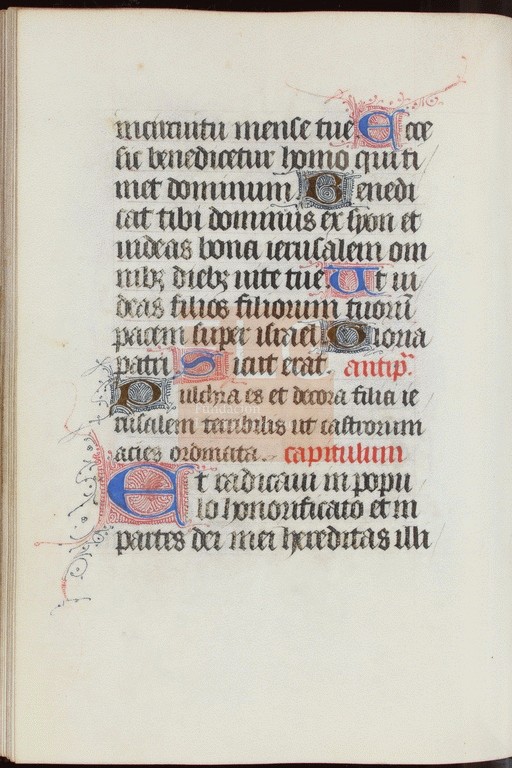 incircuitu mense tue Ecce
sic benedicetur homo qui ti
met dominum Benedi
cat tibi dominus ex syon et
uideas bona ierusalem om
nibꝫ diebꝫ uite tue Ut ui
deas filios filiorum tuorū
pacem super israel Gloria
patri Sicut erat. antip̄.
Pulchra es et decora filia ie
rusalem terribilis ut castrorum
acies ordinata. capitulum
Et radicaui in popu
lo honorificato et in
partes dei mei hereditas illi
Fundación